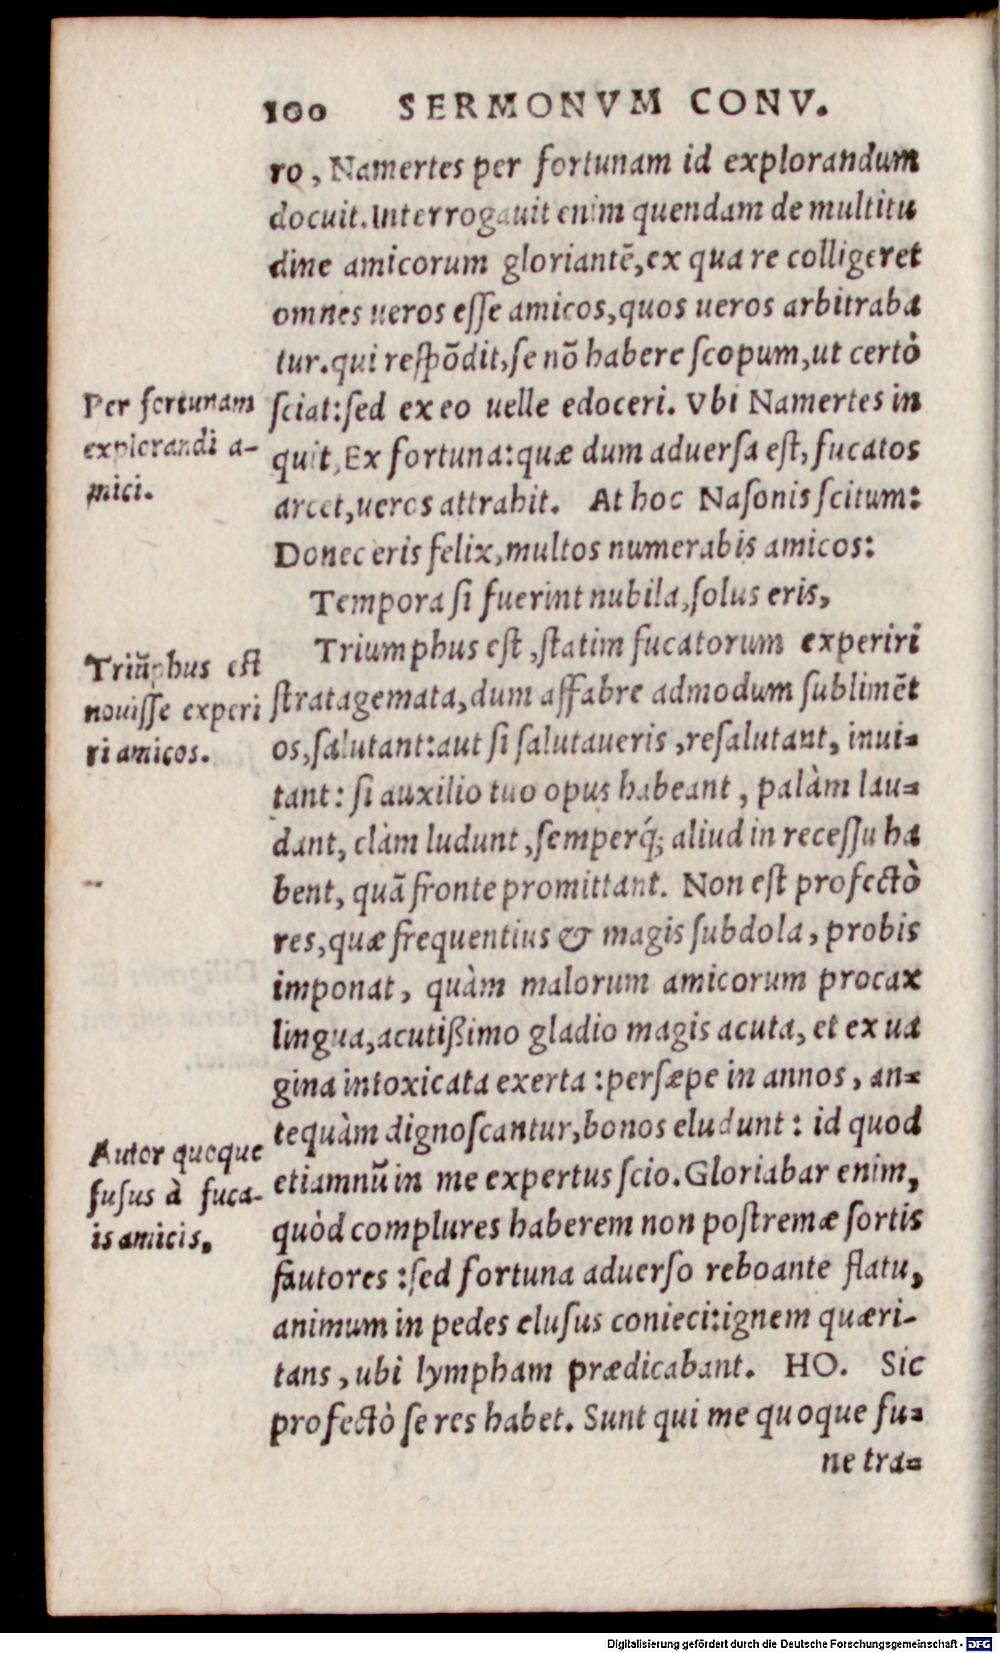 100 SERMONVM CONV.
ro, Namertes per fortunam id explorandum
docuit. Interrogauit enim quendam de multitu
dine amicorum gloriantē, ex qua re colligeret
omnes ueros eſſe amicos, quos ueros arbitraba
tur. qui reſpōdit, ſe nō habere ſcopum, ut certò
ſciat: ſed ex eo uelle edoceri. Vbi Namertes in
quit, Ex fortuna: quæ dum aduerſa eſt, fucatos
arcet, ueros attrahit. At hoc Naſonis ſcitum:
Donec eris felix, multos numerabis amicos:
Tempora ſi fuerint nubila, ſolus eris,
Triumphus eſt, ſtatim fucatorum experiri
ſtratagemata, dum affabre admodum ſublimēt
os, ſalutant: aut ſi ſalutaueris, reſalutant, inui-
tant: ſi auxilio tuo opus habeant, palàm lau-
dant, clàm ludunt, ſemperq́; aliud in receſſu ha
bent, quā fronte promittant. Non eſt profectò
res, quæ frequentius & magis ſubdola, probis
imponat, quàm malorum amicorum procax
lingua, acutißimo gladio magis acuta, et ex ua
gina intoxicata exerta: perſæpe in annos, an-
tequàm dignoſcantur, bonos eludunt: id quod
etiamnū in me expertus ſcio. Gloriabar enim,
quòd complures haberem non poſtremæ ſortis
fautores: ſed fortuna aduerſo reboante flatu,
animum in pedes eluſus conieci: ignem quæri-
tans, ubi lympham prædicabant. HO. Sic
profectò ſe res habet. Sunt qui me quoque fu-
ne tra-
Per fortunam
explorandi a-
mici.
Triūphus eſt
nouiſſe experi
ri amicos.
Autor quoque
fuſus à fuca-
is amicis.
Digitalisierung gefördert durch die Deutsche Forschungsgemeinschaft - DFG